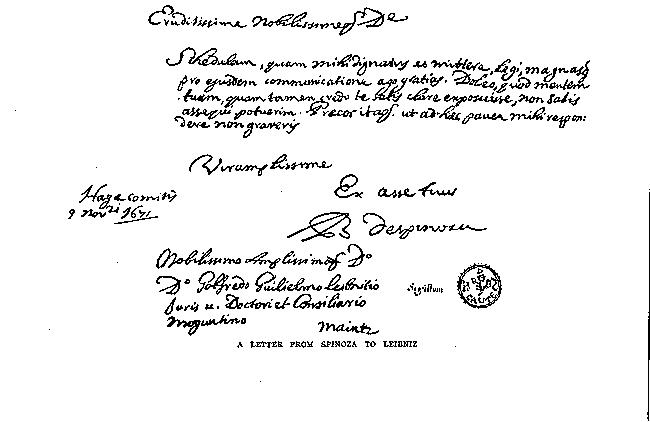 Eruditissime Nobilissimeq. De
Schedulam, quam mihi dignatus es mittere, legi, magnasq
pro ejusdem communicatione ago gratias. Doleo, quod mentem
tuam, quam tamen credo te satis clare exposuisse, non satis
assequi potuerim. Precor itaq. ut ad hæc pauca mihi respon-
dere non graveris
Vir amplissime
Ex asse tuus
Hagæ comitis
9 Novbris 1671
B despinoza
Nobilissimo amplissimoq. Do
Do Gotfredo Guilielmo Leibnitio
Juris u. Doctori et Consiliario
Moguntino
Maintz
Sigillum
A LETTER FROM SPINOZA TO LEIBNIZ